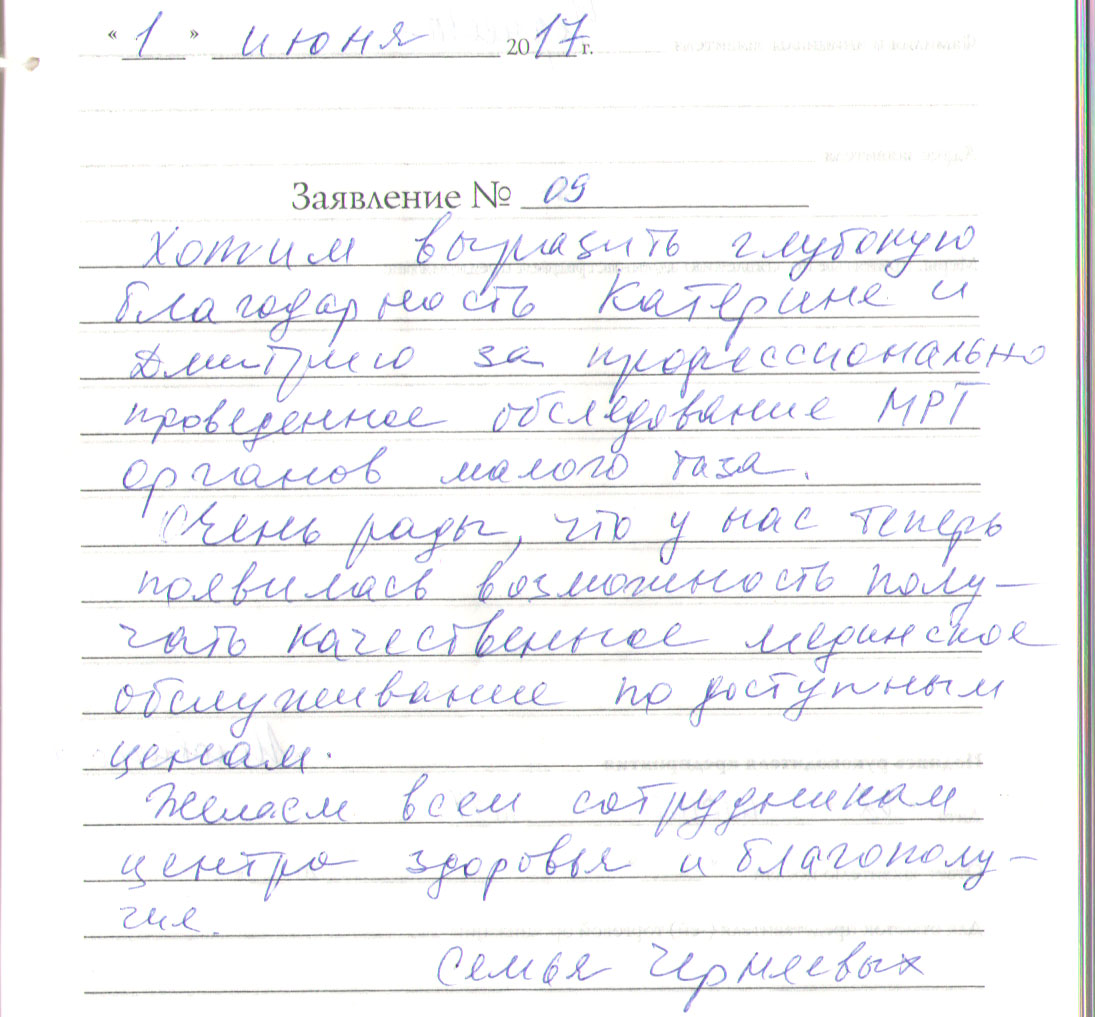 « 1 » июня 2017 г.
Заявление № 09
Хотим выразить глубокую
благодарность Катерине и
Дмитрию за профессионально
проведенное обследование МРТ
органов малого таза.
Очень рады, что у нас теперь
появилась возможность полу-
чать качественное мединское
обслуживание по доступным
ценам.
Желаем всем сотрудникам
центра здоровья и благополу-
чия.
Семья Черняевых